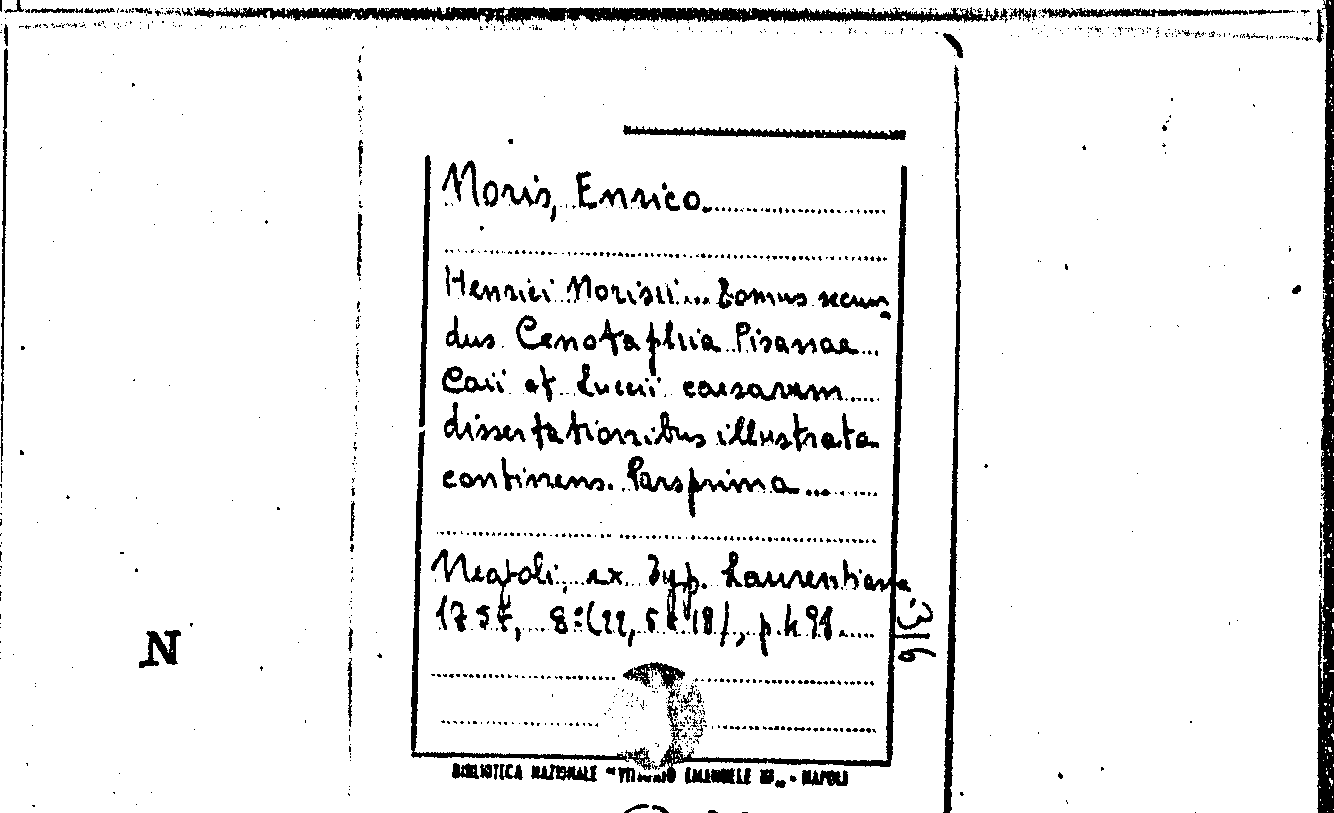 Noris, Enrico.
Henrici Norisii... tomus secun-
dus Cenotaphia Pisanae...
Caii et Lucii caesarum
dissertationibus illustrata
continens. Pars prima...
Neapoli, ex Typ. Laurentiana
1757, 8º (22, 5 x 18), p. 491.
316
N
BIBLIOTECA NAZIONALE "VITTORIO EMANUELE III" - NAPOLI